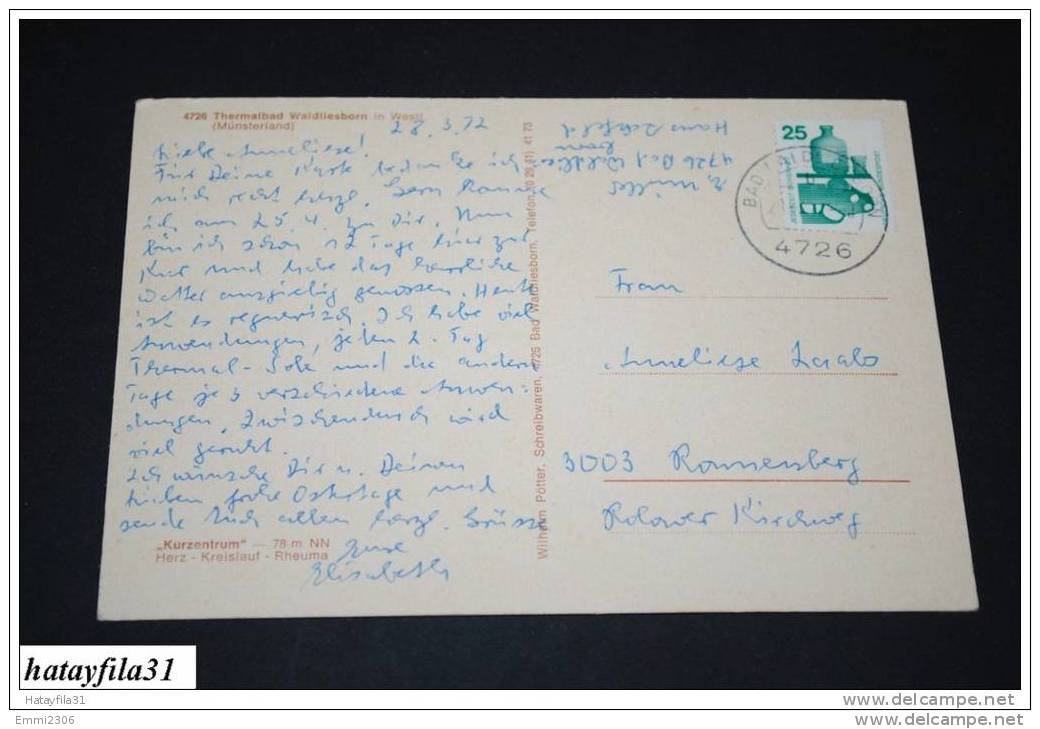 4726 Thermalbad Waldliesborn in Westf.
(Münsterland)
28.3.72
Liebe Anneliese!
Für Deine Karte bedanke ich
mich recht herzl. Gern komme
ich am 25.4. zu Dir. Nun
bin ich schon 12 Tage hier zur
Kur und habe das herrliche
Wetter ausgiebig genossen. Heute
ist es regnerisch. Ich habe viel
Anwendungen, jeden 2. Tag
Thermal-Sole und die andern
Tage je 3 verschiedene Anwen-
dungen. Zwischendurch wird
viel geruht.
Ich wünsche Dir u. Deinen
Lieben frohe Ostertage und
sende Euch allen herzl. Grüsse
Eure
Elisabeth
„Kurzentrum“ — 78 m NN
Herz - Kreislauf - Rheuma
Wilhelm Pötter, Schreibwaren, 4725 Bad Waldliesborn, Telefon (0 29 41) 41 73
4726 Bad Waldlies
born
Haus
25
BAD WALDLIESBORN
4726
Frau
Anneliese
3003 Ronnenberg
Kirchweg
hatayfila31
Hatayfila31
www.delcampe.net
Emmi2306
www.delcampe.net